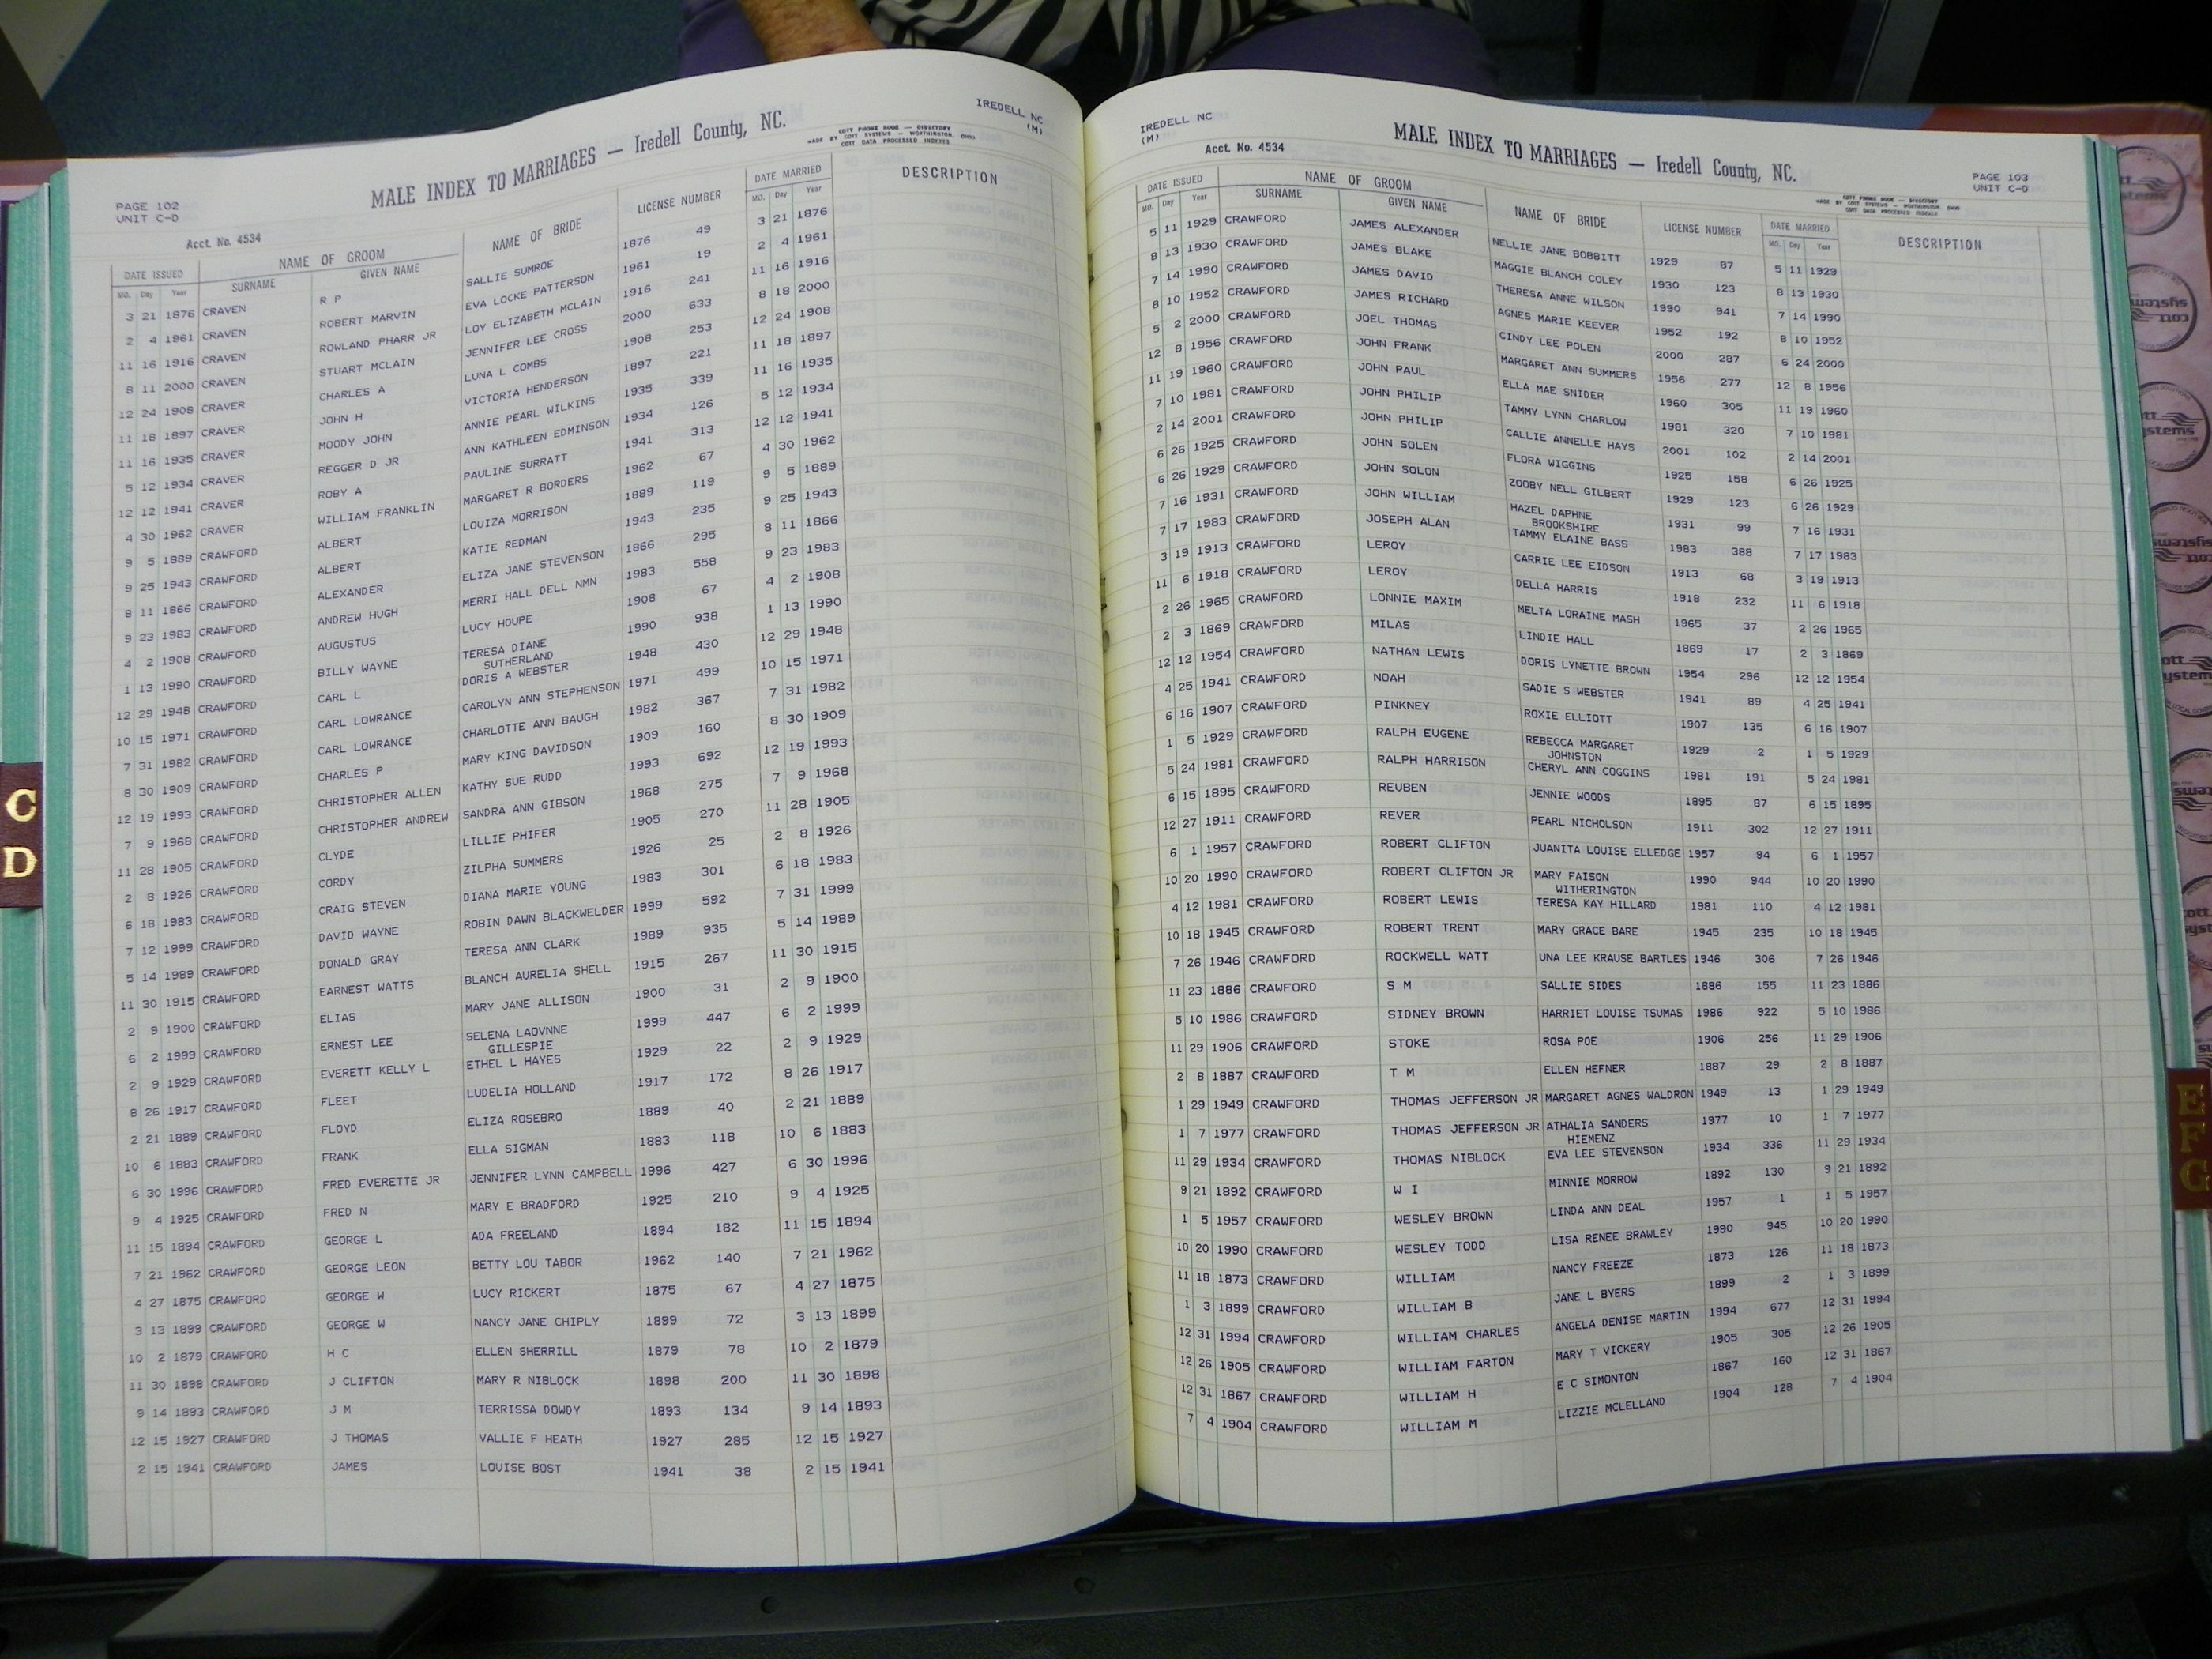 PAGE 102
UNIT C-D
MALE INDEX TO MARRIAGES — Iredell County, NC.
IREDELL NC
(M)
Acct. No. 4534
MADE BY COTT PHONE BOOK — DIRECTORY
COTT SYSTEMS — WORTHINGTON, OHIO
COTT DATA PROCESSED INDEXES
DATE ISSUED NAME OF GROOM NAME OF BRIDE LICENSE NUMBER DATE MARRIED DESCRIPTION
MO. Day Year SURNAME GIVEN NAME MO. Day Year
3 21 1876 CRAVEN R P SALLIE SUMROE 1876 49 3 21 1876
2 4 1961 CRAVEN ROBERT MARVIN EVA LOCKE PATTERSON 1961 19 2 4 1961
11 16 1916 CRAVEN ROWLAND PHARR JR LOY ELIZABETH MCLAIN 1916 241 11 16 1916
8 11 2000 CRAVEN STUART MCLAIN JENNIFER LEE CROSS 2000 633 8 18 2000
12 24 1908 CRAVER CHARLES A LUNA L COMBS 1908 253 12 24 1908
11 18 1897 CRAVER JOHN H VICTORIA HENDERSON 1897 221 11 18 1897
11 16 1935 CRAVER MOODY JOHN ANNIE PEARL WILKINS 1935 339 11 16 1935
5 12 1934 CRAVER REGGER D JR ANN KATHLEEN EDMINSON 1934 126 5 12 1934
12 12 1941 CRAVER ROBY A PAULINE SURRATT 1941 313 12 12 1941
4 30 1962 CRAVER WILLIAM FRANKLIN MARGARET R BORDERS 1962 67 4 30 1962
9 5 1889 CRAWFORD ALBERT LOUIZA MORRISON 1889 119 9 5 1889
9 25 1943 CRAWFORD ALBERT KATIE REDMAN 1943 235 9 25 1943
8 11 1866 CRAWFORD ALEXANDER ELIZA JANE STEVENSON 1866 295 8 11 1866
9 23 1983 CRAWFORD ANDREW HUGH MERRI HALL DELL NMN 1983 558 9 23 1983
4 2 1908 CRAWFORD AUGUSTUS LUCY HOUPE 1908 67 4 2 1908
1 13 1990 CRAWFORD BILLY WAYNE TERESA DIANE 1990 938 1 13 1990
SUTHERLAND
12 29 1948 CRAWFORD CARL L DORIS A WEBSTER 1948 430 12 29 1948
10 15 1971 CRAWFORD CARL LOWRANCE CAROLYN ANN STEPHENSON 1971 499 10 15 1971
7 31 1982 CRAWFORD CARL LOWRANCE CHARLOTTE ANN BAUGH 1982 367 7 31 1982
8 30 1909 CRAWFORD CHARLES P MARY KING DAVIDSON 1909 160 8 30 1909
12 19 1993 CRAWFORD CHRISTOPHER ALLEN KATHY SUE RUDD 1993 692 12 19 1993
7 9 1968 CRAWFORD CHRISTOPHER ANDREW SANDRA ANN GIBSON 1968 275 7 9 1968
11 28 1905 CRAWFORD CLYDE LILLIE PHIFER 1905 270 11 28 1905
2 8 1926 CRAWFORD CORDY ZILPHA SUMMERS 1926 25 2 8 1926
6 18 1983 CRAWFORD CRAIG STEVEN DIANA MARIE YOUNG 1983 301 6 18 1983
7 12 1999 CRAWFORD DAVID WAYNE ROBIN DAWN BLACKWELDER 1999 592 7 31 1999
5 14 1989 CRAWFORD DONALD GRAY TERESA ANN CLARK 1989 935 5 14 1989
11 30 1915 CRAWFORD EARNEST WATTS BLANCH AURELIA SHELL 1915 267 11 30 1915
2 9 1900 CRAWFORD ELIAS MARY JANE ALLISON 1900 31 2 9 1900
6 2 1999 CRAWFORD ERNEST LEE SELENA LAOVNNE 1999 447 6 2 1999
GILLESPIE
2 9 1929 CRAWFORD EVERETT KELLY L ETHEL L HAYES 1929 22 2 9 1929
8 26 1917 CRAWFORD FLEET LUDELIA HOLLAND 1917 172 8 26 1917
2 21 1889 CRAWFORD FLOYD ELIZA ROSEBRO 1889 40 2 21 1889
10 6 1883 CRAWFORD FRANK ELLA SIGMAN 1883 118 10 6 1883
6 30 1996 CRAWFORD FRED EVERETTE JR JENNIFER LYNN CAMPBELL 1996 427 6 30 1996
9 4 1925 CRAWFORD FRED N MARY E BRADFORD 1925 210 9 4 1925
11 15 1894 CRAWFORD GEORGE L ADA FREELAND 1894 182 11 15 1894
7 21 1962 CRAWFORD GEORGE LEON BETTY LOU TABOR 1962 140 7 21 1962
4 27 1875 CRAWFORD GEORGE W LUCY RICKERT 1875 67 4 27 1875
3 13 1899 CRAWFORD GEORGE W NANCY JANE CHIPLY 1899 72 3 13 1899
10 2 1879 CRAWFORD H C ELLEN SHERRILL 1879 78 10 2 1879
11 30 1898 CRAWFORD J CLIFTON MARY R NIBLOCK 1898 200 11 30 1898
9 14 1893 CRAWFORD J M TERRISSA DOWDY 1893 134 9 14 1893
12 15 1927 CRAWFORD J THOMAS VALLIE F HEATH 1927 285 12 15 1927
2 15 1941 CRAWFORD JAMES LOUISE BOST 1941 38 2 15 1941
C
D
IREDELL NC
(M)
Acct. No. 4534
MALE INDEX TO MARRIAGES — Iredell County, NC.
PAGE 103
UNIT C-D
MADE BY COTT PHONE BOOK — DIRECTORY
COTT SYSTEMS — WORTHINGTON, OHIO
COTT DATA PROCESSED INDEXES
DATE ISSUED NAME OF GROOM NAME OF BRIDE LICENSE NUMBER DATE MARRIED DESCRIPTION
MO. Day Year SURNAME GIVEN NAME MO. Day Year
5 11 1929 CRAWFORD JAMES ALEXANDER NELLIE JANE BOBBITT 1929 87 5 11 1929
8 13 1930 CRAWFORD JAMES BLAKE MAGGIE BLANCH COLEY 1930 123 8 13 1930
7 14 1990 CRAWFORD JAMES DAVID THERESA ANNE WILSON 1990 941 7 14 1990
8 10 1952 CRAWFORD JAMES RICHARD AGNES MARIE KEEVER 1952 192 8 10 1952
5 2 2000 CRAWFORD JOEL THOMAS CINDY LEE POLEN 2000 287 6 24 2000
12 8 1956 CRAWFORD JOHN FRANK MARGARET ANN SUMMERS 1956 277 12 8 1956
11 19 1960 CRAWFORD JOHN PAUL ELLA MAE SNIDER 1960 305 11 19 1960
7 10 1981 CRAWFORD JOHN PHILIP TAMMY LYNN CHARLOW 1981 320 7 10 1981
2 14 2001 CRAWFORD JOHN PHILIP CALLIE ANNELLE HAYS 2001 102 2 14 2001
6 26 1925 CRAWFORD JOHN SOLEN FLORA WIGGINS 1925 158 6 26 1925
6 26 1929 CRAWFORD JOHN SOLON ZOOBY NELL GILBERT 1929 123 6 26 1929
7 16 1931 CRAWFORD JOHN WILLIAM HAZEL DAPHNE 1931 99 7 16 1931
BROOKSHIRE
7 17 1983 CRAWFORD JOSEPH ALAN TAMMY ELAINE BASS 1983 388 7 17 1983
3 19 1913 CRAWFORD LEROY CARRIE LEE EIDSON 1913 68 3 19 1913
11 6 1918 CRAWFORD LEROY DELLA HARRIS 1918 232 11 6 1918
2 26 1965 CRAWFORD LONNIE MAXIM MELTA LORAINE MASH 1965 37 2 26 1965
2 3 1869 CRAWFORD MILAS LINDIE HALL 1869 17 2 3 1869
12 12 1954 CRAWFORD NATHAN LEWIS DORIS LYNETTE BROWN 1954 296 12 12 1954
4 25 1941 CRAWFORD NOAH SADIE S WEBSTER 1941 89 4 25 1941
6 16 1907 CRAWFORD PINKNEY ROXIE ELLIOTT 1907 135 6 16 1907
1 5 1929 CRAWFORD RALPH EUGENE REBECCA MARGARET 1929 2 1 5 1929
JOHNSTON
5 24 1981 CRAWFORD RALPH HARRISON CHERYL ANN COGGINS 1981 191 5 24 1981
6 15 1895 CRAWFORD REUBEN JENNIE WOODS 1895 87 6 15 1895
12 27 1911 CRAWFORD REVER PEARL NICHOLSON 1911 302 12 27 1911
6 1 1957 CRAWFORD ROBERT CLIFTON JUANITA LOUISE ELLEDGE 1957 94 6 1 1957
10 20 1990 CRAWFORD ROBERT CLIFTON JR MARY FAISON 1990 944 10 20 1990
WITHERINGTON
4 12 1981 CRAWFORD ROBERT LEWIS TERESA KAY HILLARD 1981 110 4 12 1981
10 18 1945 CRAWFORD ROBERT TRENT MARY GRACE BARE 1945 235 10 18 1945
7 26 1946 CRAWFORD ROCKWELL WATT UNA LEE KRAUSE BARTLES 1946 306 7 26 1946
11 23 1886 CRAWFORD S M SALLIE SIDES 1886 155 11 23 1886
5 10 1986 CRAWFORD SIDNEY BROWN HARRIET LOUISE TSUMAS 1986 922 5 10 1986
11 29 1906 CRAWFORD STOKE ROSA POE 1906 256 11 29 1906
2 8 1887 CRAWFORD T M ELLEN HEFNER 1887 29 2 8 1887
1 29 1949 CRAWFORD THOMAS JEFFERSON JR MARGARET AGNES WALDRON 1949 13 1 29 1949
1 7 1977 CRAWFORD THOMAS JEFFERSON JR ATHALIA SANDERS 1977 10 1 7 1977
HIEMENZ
11 29 1934 CRAWFORD THOMAS NIBLOCK EVA LEE STEVENSON 1934 336 11 29 1934
9 21 1892 CRAWFORD W I MINNIE MORROW 1892 130 9 21 1892
1 5 1957 CRAWFORD WESLEY BROWN LINDA ANN DEAL 1957 1 1 5 1957
10 20 1990 CRAWFORD WESLEY TODD LISA RENEE BRAWLEY 1990 945 10 20 1990
11 18 1873 CRAWFORD WILLIAM NANCY FREEZE 1873 126 11 18 1873
1 3 1899 CRAWFORD WILLIAM B JANE L BYERS 1899 2 1 3 1899
12 31 1994 CRAWFORD WILLIAM CHARLES ANGELA DENISE MARTIN 1994 677 12 31 1994
12 26 1905 CRAWFORD WILLIAM FARTON MARY T VICKERY 1905 305 12 26 1905
12 31 1867 CRAWFORD WILLIAM H E C SIMONTON 1867 160 12 31 1867
7 4 1904 CRAWFORD WILLIAM M LIZZIE MCLELLAND 1904 128 7 4 1904
E
F
G
cott
systems